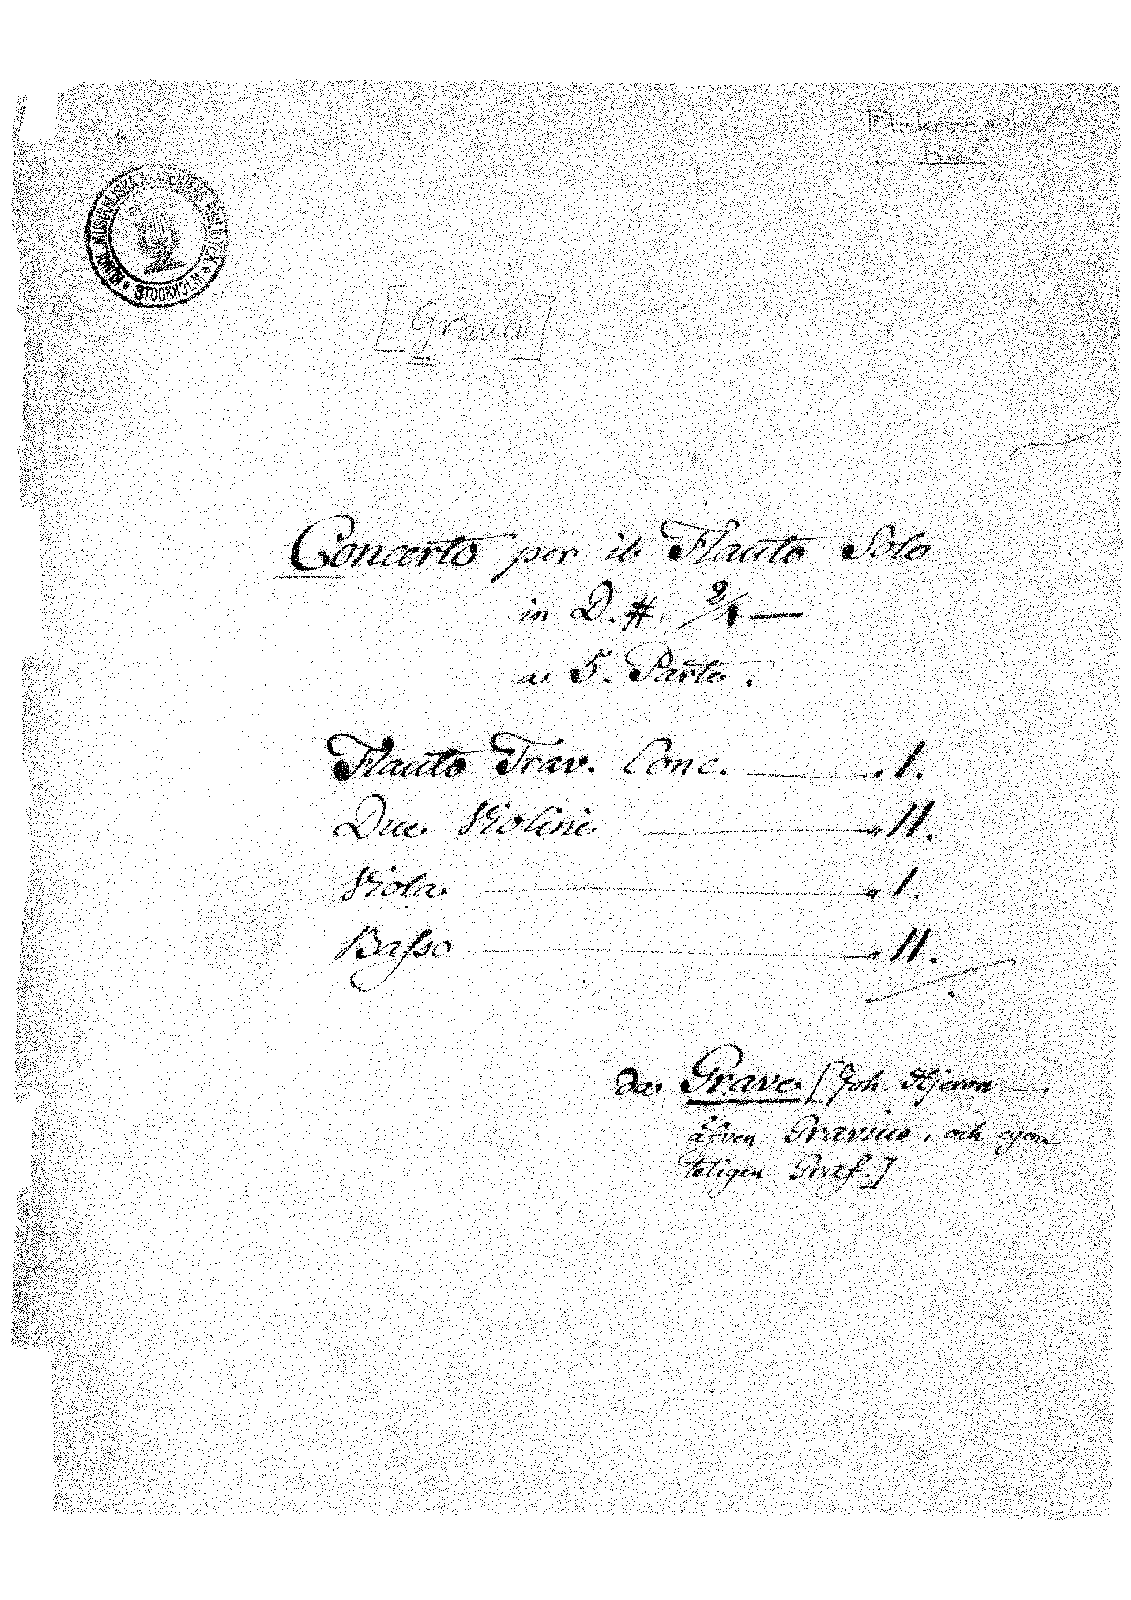 STOCKHOLM
[Grave]
Concerto per il Flauto Solo
in D.# 2/4 —
a 5. Parte.
Flauto Trav. Conc. 1.
Due Violini 11.
Viola 1.
Basso 11.
da Grave [Joh. Hjeron
äfven Gravius, och egen
teligen Graf.]